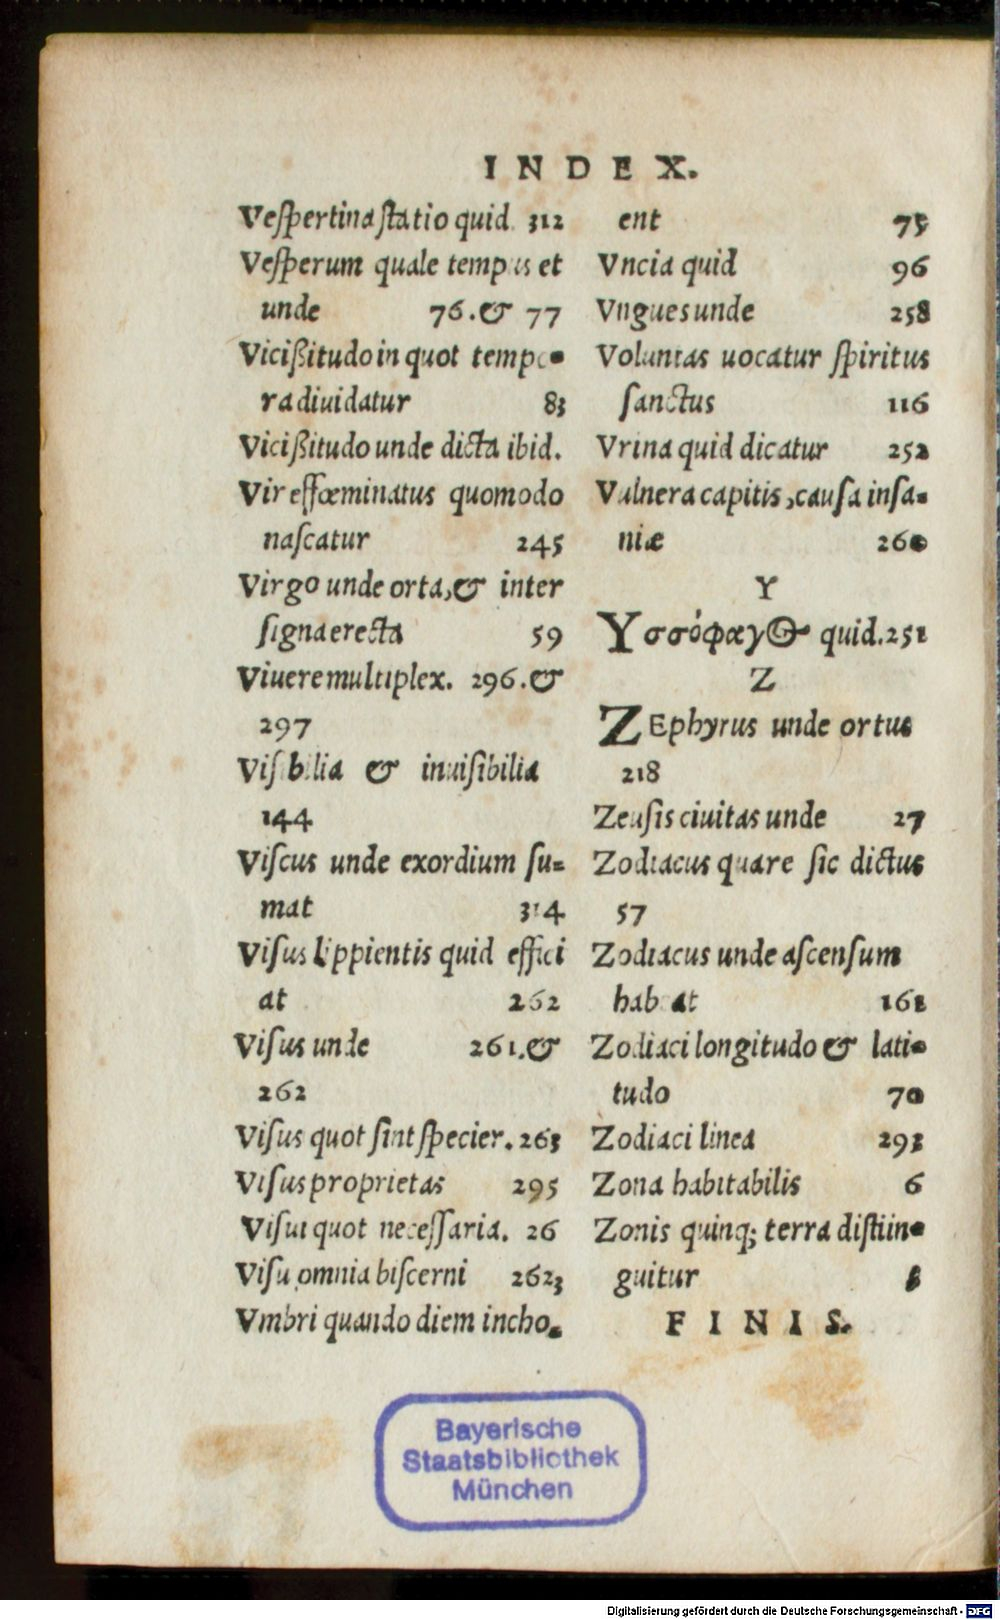 INDEX.
Veſpertina ſtatio quid 312
Veſperum quale tempus et
unde 76.& 77
Viciſſitudo in quot tempo-
ra diuidatur 83
Viciſſitudo unde dicta ibid.
Vir effœminatus quomodo
naſcatur 245
Virgo unde orta,& inter
ſigna erecta 59
Viuere multiplex. 296.&
297
Viſibilia & inuiſibilia
144
Viſcus unde exordium ſu-
mat 314
Viſus lippientis quid effici
at 262
Viſus unde 261.&
262
Viſus quot ſint ſpecier. 263
Viſus proprietas 295
Viſui quot neceſſaria. 26
Viſu omnia biſcerni 2623
Vmbri quando diem incho-
ent 75
Vncia quid 96
Vngues unde 258
Voluntas uocatur ſpiritus
ſanctus 116
Vrina quid dicatur 252
Vulnera capitis, cauſa inſa-
niæ 260
Y
Υσσόφαγος quid. 251
Z
ZEphyrus unde ortus
218
Zeuſis ciuitas unde 27
Zodiacus quare ſic dictus
57
Zodiacus unde aſcenſum
habeat
Zodiaci longitudo & lati-
tudo 70
Zodiaci linea
Zona habitabilis 6
Zonis quinq; terra diſtin-
guitur
FINIS.
Bayerische
Staatsbibliothek
München
Digitalisierung gefördert durch die Deutsche Forschungsgemeinschaft - DFG